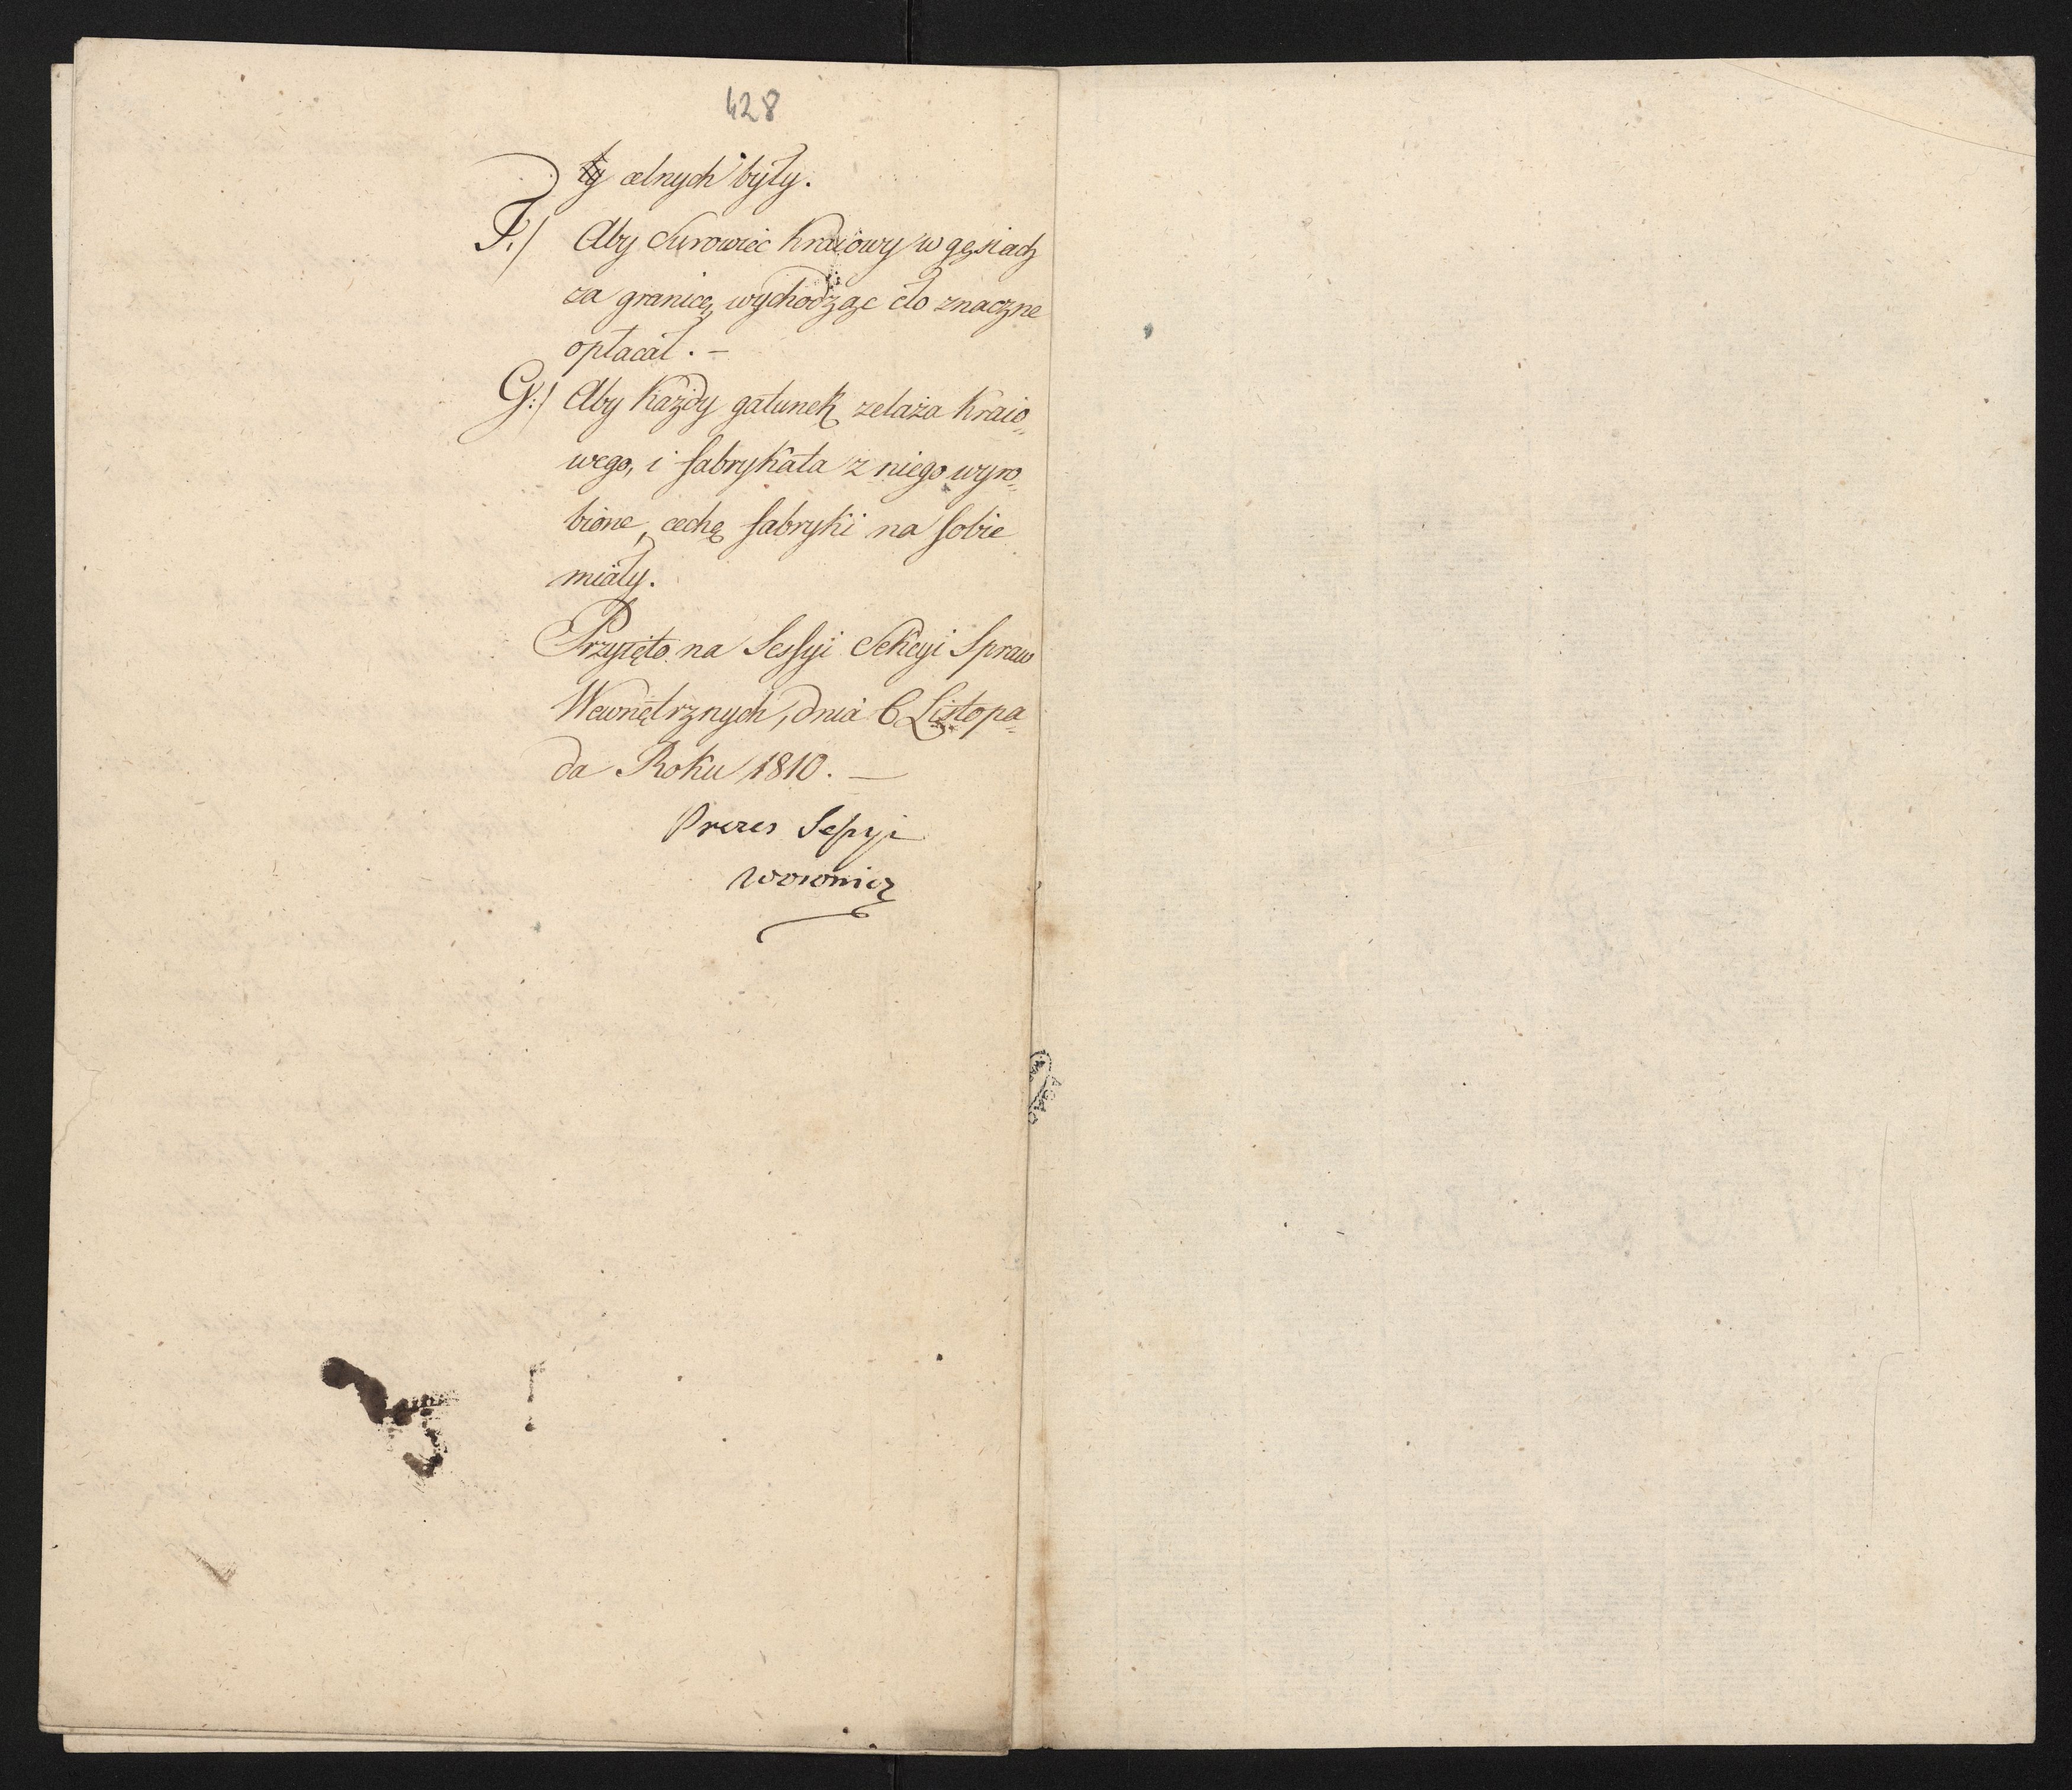 428
celnych były.
F./ Aby Surowiec kraiowy w gęsiach
za granicę wychodząc cło znaczne
opłacał. –
G:/ Aby każdy gatunek zelaza kraio„
wego, i fabrykata z niego wyro„
bione, cechę fabryki na sobie
miały.
Przyięto na Sessyi Sekcyi Spraw
Wewnętrznych, dnia 6 Listopa„
da Roku 1810. —
Prezes Sessyi
Woronicz